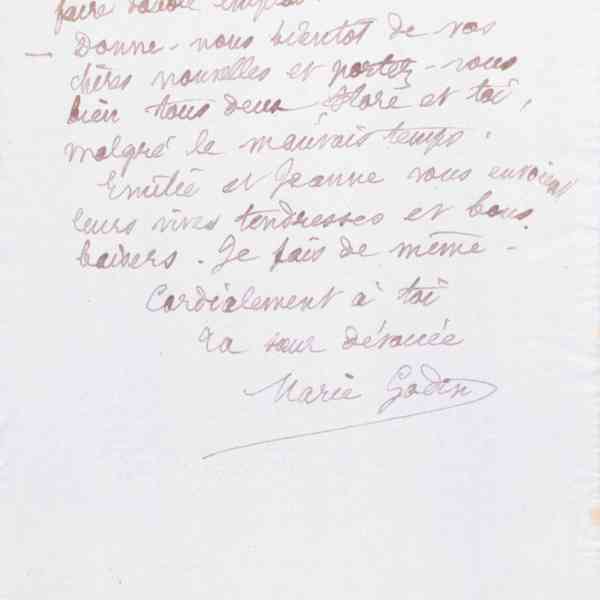 faire double emploi.
— Donne-nous bientôt de vos
chères nouvelles et portez-vous
bien tous deux Flore et toi,
malgré le mauvais temps.
Emilie et Jeanne vous envoient
leurs vives tendresses et bons
baisers. Je fais de même -
Cordialement à toi
Ta sœur dévouée
Marie Godin